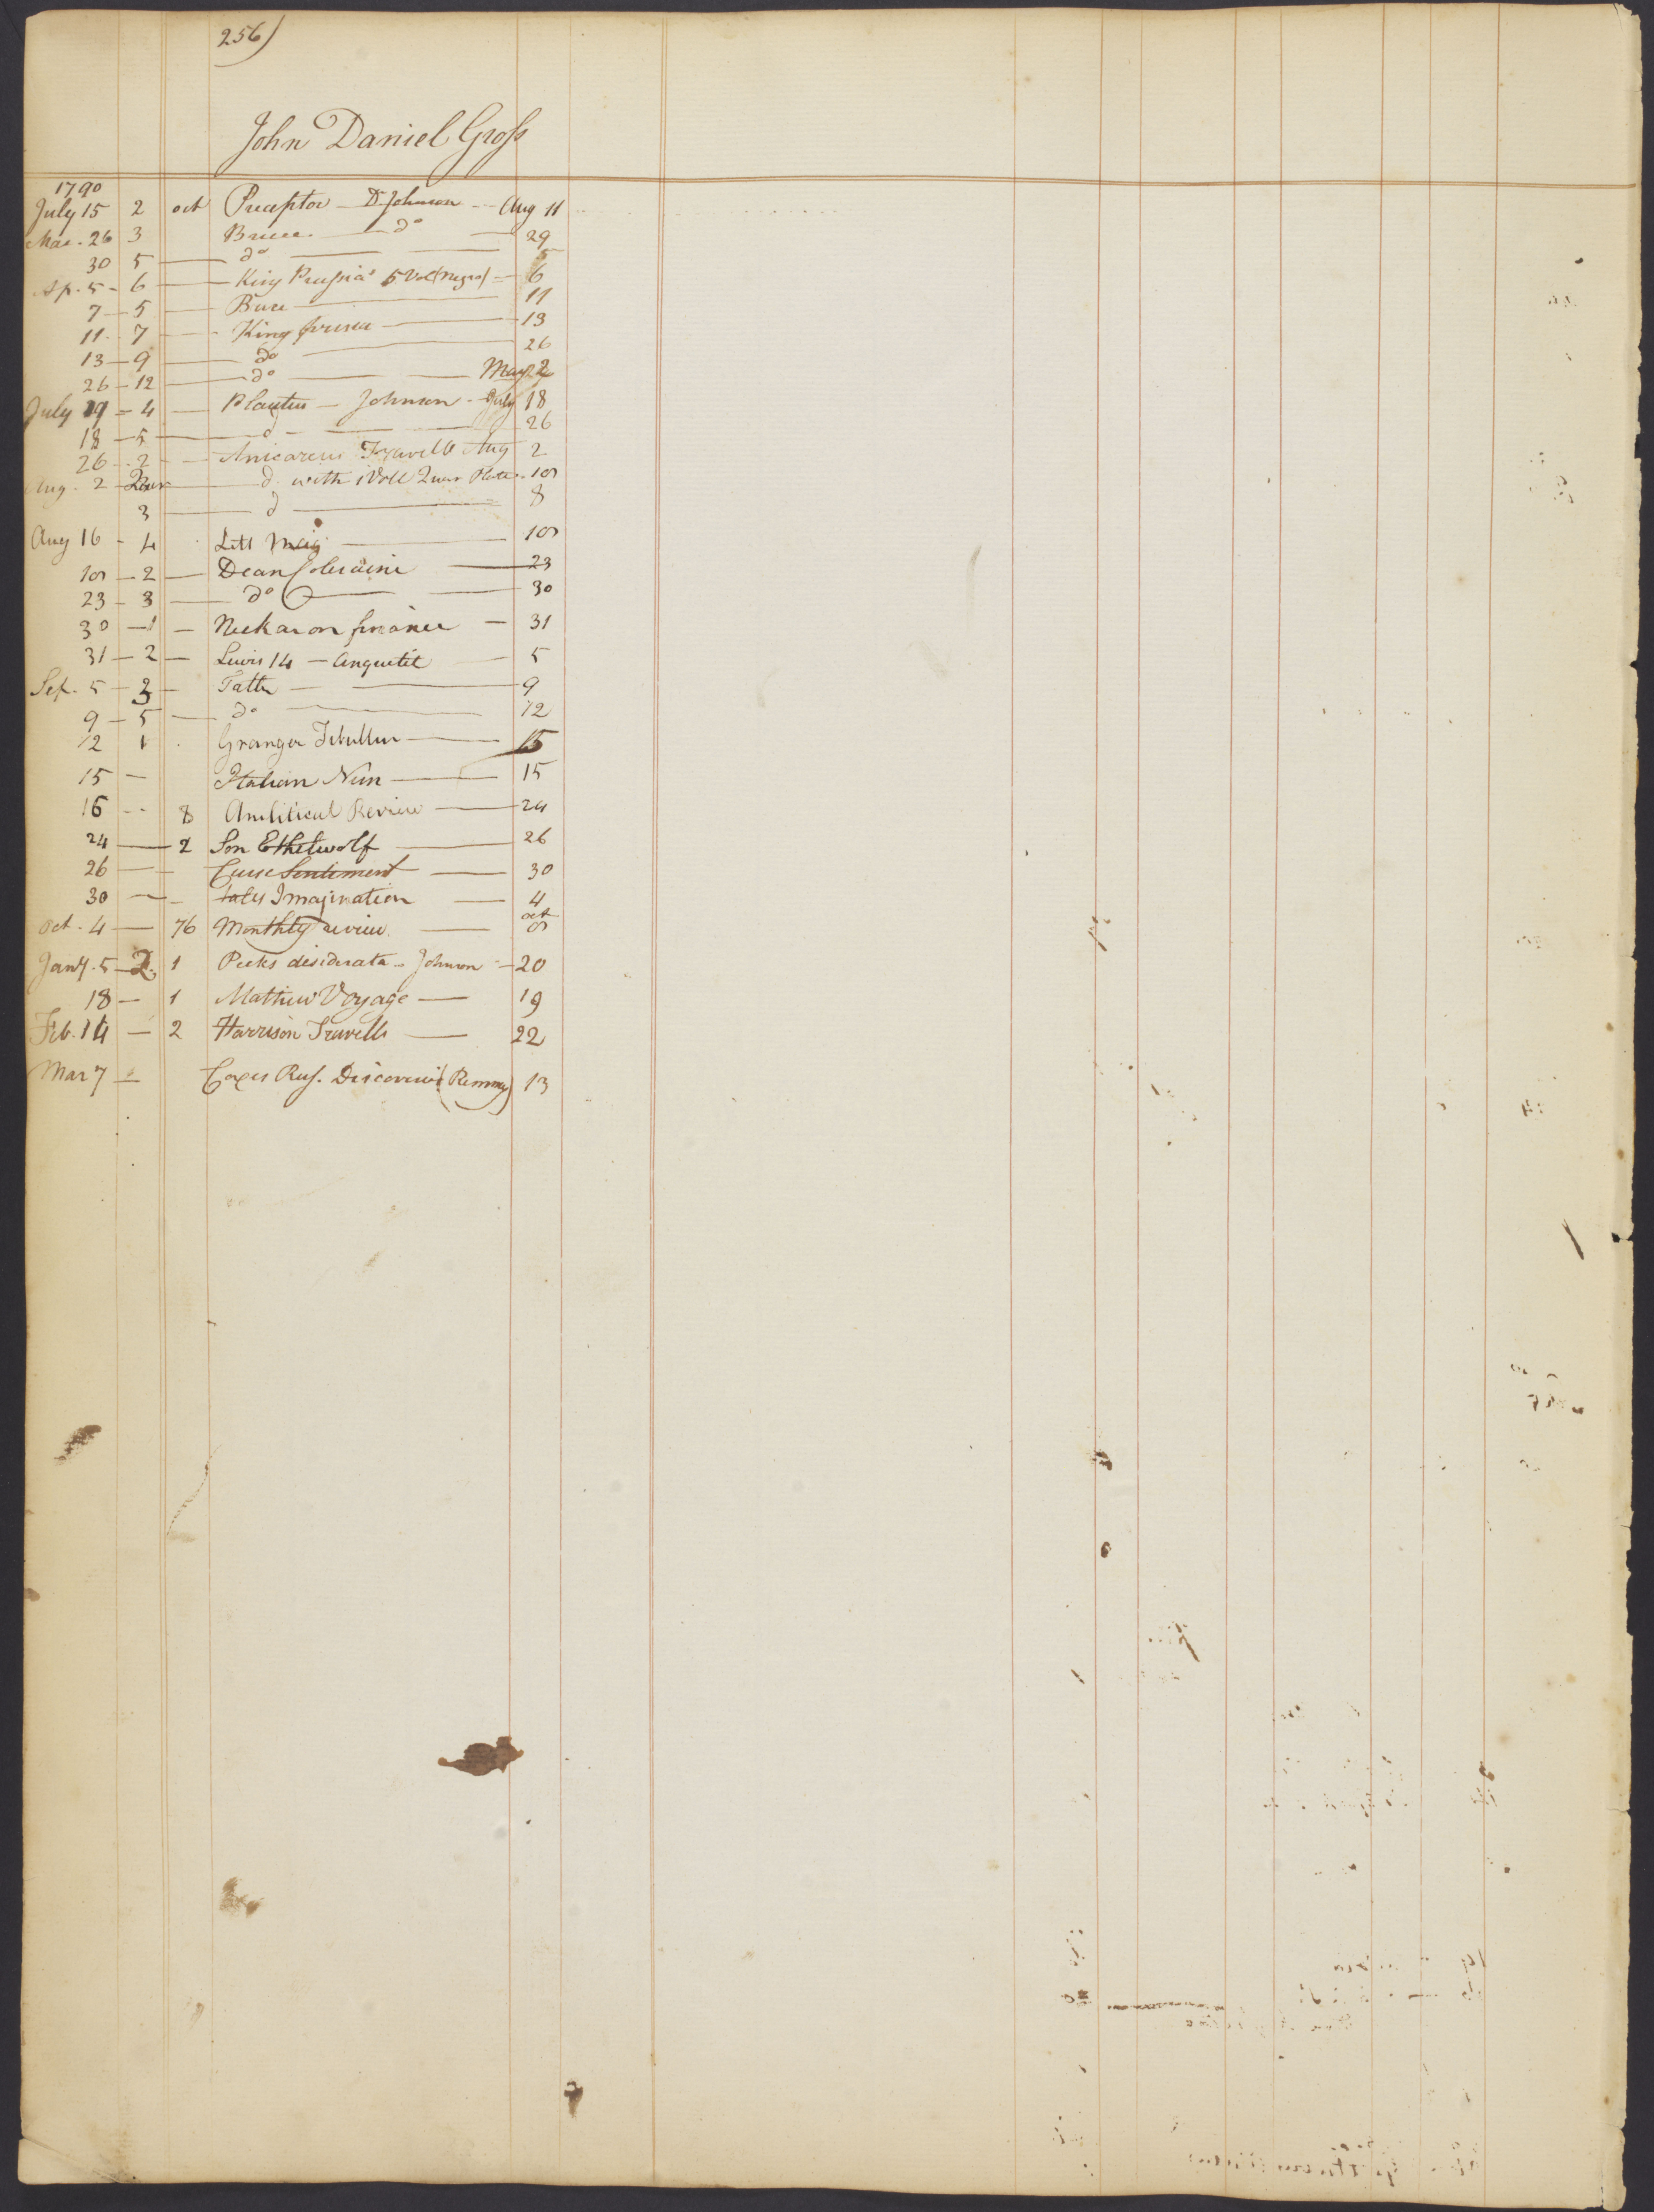 256)
John Daniel Gross
1790
July 15 2 oct Preceptor — Dr Johnson — Aug 11
Mar. 26 3 Bruce — do — 29
30 5 — do — 5
Ap. 5 - 6 — King Prussia's 5 Vol (negro) — 6
7 — 5 — Bruce — 11
11 - 7 — King prusia — 13
13 — 9 — do — 26
26 — 12 — do — May 2
July — 4 — Plautus — Johnson - July 18
18 — 5 — d — 26
26 - 2 — Travells Aug 2
Aug. 2 — d. with 1 Voll Plates. 10
3 — d — 8
Aug 16 - 4 Litt Mag — 10
10 — 2 — Dean Coleraine — 23
23 — 3 — do — 30
30 — 1 — Neckar on finance — 31
31 — 2 — Lewis 14 — Anquetil — 5
Sep. 5 — 3 — Tatler — 9
9 — 5 — do — 12
12 1 Granger Tibullus — 15
15 — Italian Nun — 15
15 - - 8 Analitical Review — 24
24 — 2 Son Ethelwolf — 26
26 — Curse Sentiment — 30
30 — tales Imagination — 4
Oct. 4 — 76 Monthly review — oct 8
Jany. 5 — 2. 1 Peeks desiderata — Johnson — 20
18 — 1 Mathew Voyage — 19
Feb. 14 — 2 Harrison Travells — 22
Mar 7 — Coxes Rus. Discoveries (Remmy) 13